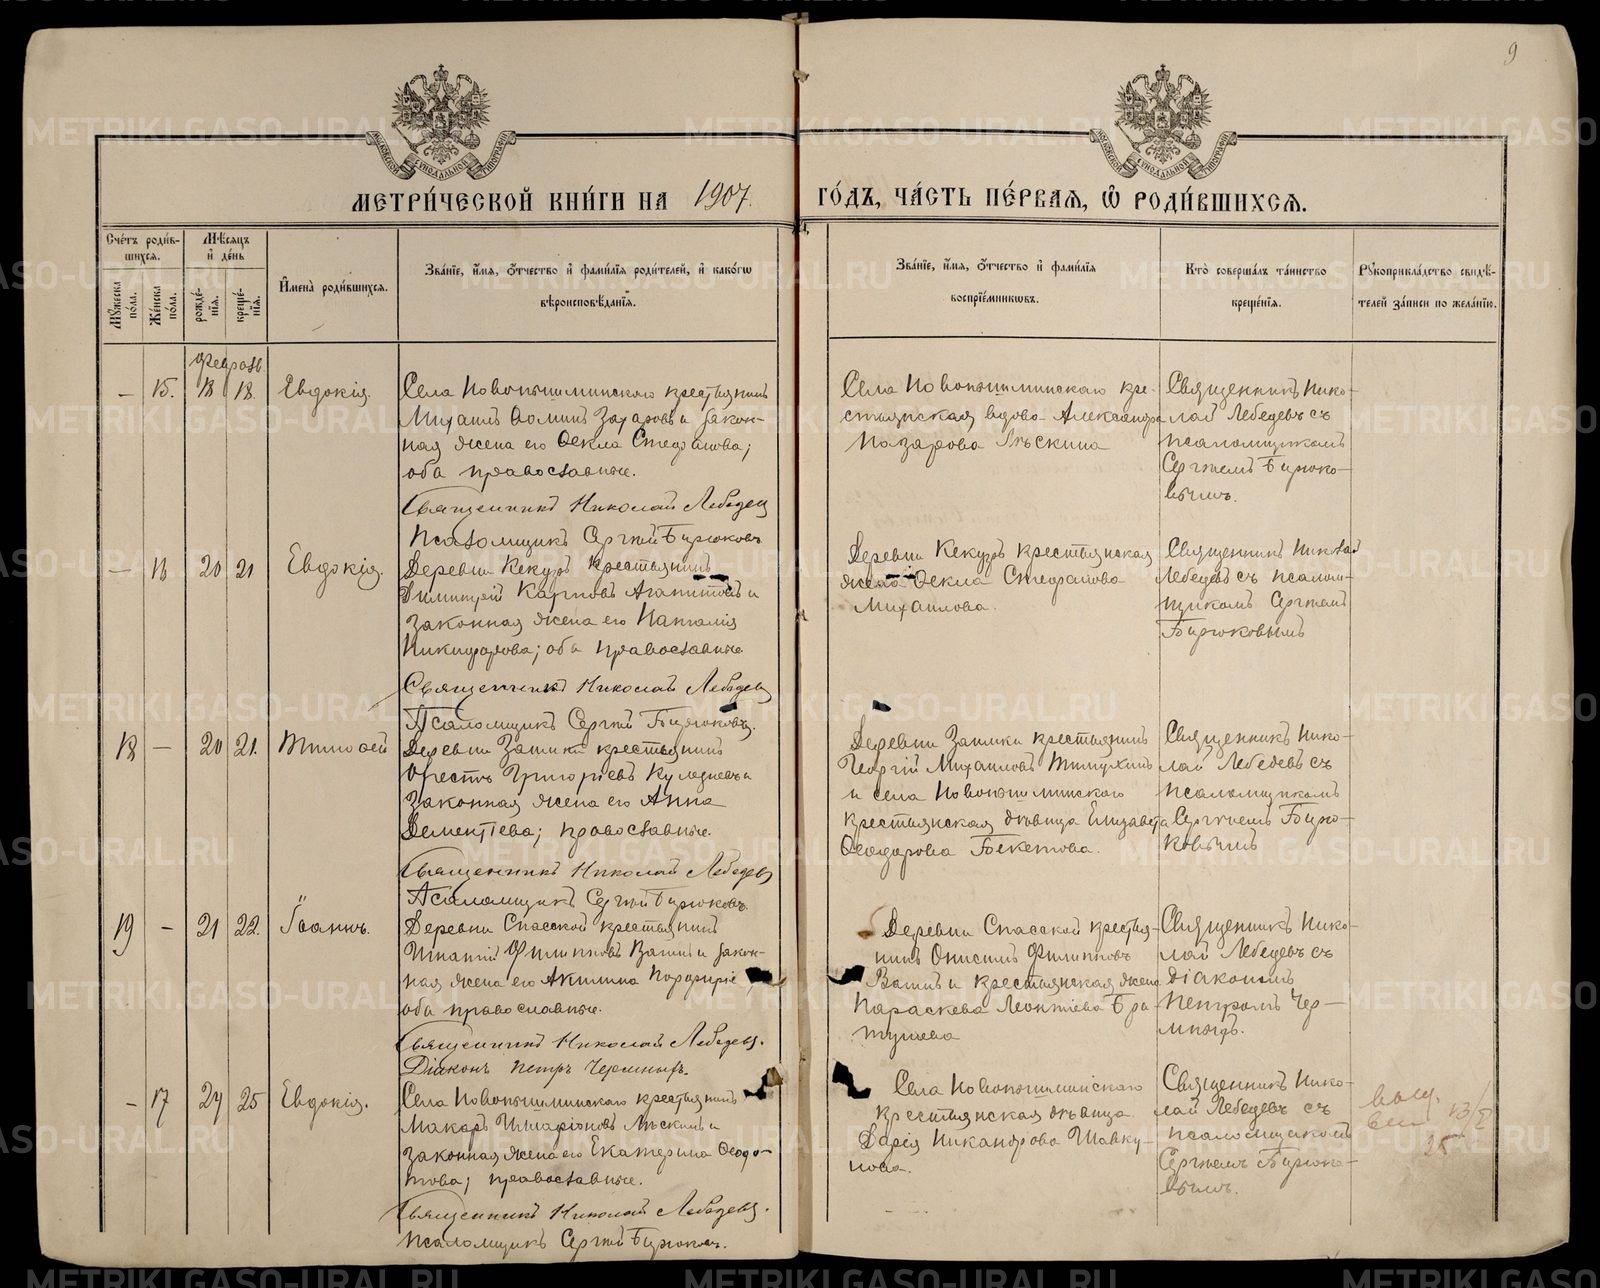 9
МЕТРИ́ЧЕСКОЙ КНИ́ГИ НА 1907. ГО́ДЪ, ЧА́СТЬ ПЕ́РВАЯ, Ѿ РОДИ́ВШИХСЯ.
Сче́тъ роди́в-
шихся.
Мѣ́сяцъ
и҆ де́нь
Мꙋ́жеска по́ла.
Же́нска по́ла.
рожде́-
нїя.
креще́-
нїя.
И҆мена̀ роди́вшихся.
Зва́нїе, и҆́мя, ѻ҆́тчество и҆ фами́лїя роди́телей, и҆ како́гѡ
вѣроисповѣ́данїя.
Зва́нїе, и҆́мя, ѻ҆́тчество и҆ фами́лїя
воспрїе́мникѡвъ.
Кто̀ соверша́лъ та́инство
креще́нїя.
Рꙋкоприкла́дство свидѣ́-
телей за́писи по жела́нїю.
–
15.
18
18.
Евдокія.
Села Новопышминскаго крестьянинъ
Захаровъ и закон-
ная жена его Ѳекла Стефанова;
оба православные.
Священникъ Николай Лебедевъ
Псаломщикъ Сергій Бирюковъ
Села Новопышминскаго кре-
стьянская вдова Александра
Назарова Лѣскина
Священникъ Нико-
лай Лебедевъ съ
псаломщикомъ
Сергіемъ Бирюко-
вымъ.
–
16
20
21
Евдокія.
Деревни Кекуръ крестьянинъ
Димитрій Карповъ Агапитовъ и
законная жена его Наталія
Никифорова; оба православные
Священникъ Николай Лебедевъ
Псаломщикъ Сергій Бирюковъ.
Деревни Кекуръ крестьянская
жена Ѳекла Стефанова
Михайлова.
Священникъ Николай
Лебедевъ съ псалом-
щикомъ Сергіемъ
Бирюковымъ
18
–
20
21.
Тимоѳей
Деревни Заимки крестьянинъ
Орестъ Григорьевъ и
законная жена его Анна
Дементіева; православные.
Священникъ Николай Лебедевъ
Псаломщикъ Сергій Бирюковъ.
Деревни Заимки крестьянинъ
Георгій Михайловъ
и села Новопышминскаго
крестьянская дѣвица Елизавета
Ѳеодорова Бекетова.
Священникъ Нико-
лай Лебедевъ съ
псаломщикомъ
Сергіемъ Бирю-
ковымъ
19
–
21
22.
Іоаннъ.
Деревни Спасской крестьянинъ
Игнатій Филипповъ и закон-
ная жена его Акилина Порфиріе
оба православные.
Священникъ Николай Лебедевъ.
Діаконъ Петръ
Деревни Спасской крестья-
нинъ Онисимъ Филипповъ
и крестьянская жена
Параскева Леонтіева
Священникъ Нико-
лай Лебедевъ съ
діакономъ
Петромъ
–
17
24
25
Евдокія.
Села Новопышминскаго крестьянинъ
Макаръ Иларіоновъ Лѣскинъ и
законная жена его Екатерина Ѳедо-
това; православные.
Священникъ Николай Лебедевъ.
Псаломщикъ Сергій Бирюковъ.
Села Новопышминскаго
крестьянская дѣвица
Дарія Никандрова Шавку-
нова.
Священникъ Нико-
лай Лебедевъ съ
псаломщикомъ
Сергіемъ Бирюко-
вымъ.
25
METRIKI.GASO-URAL.RU